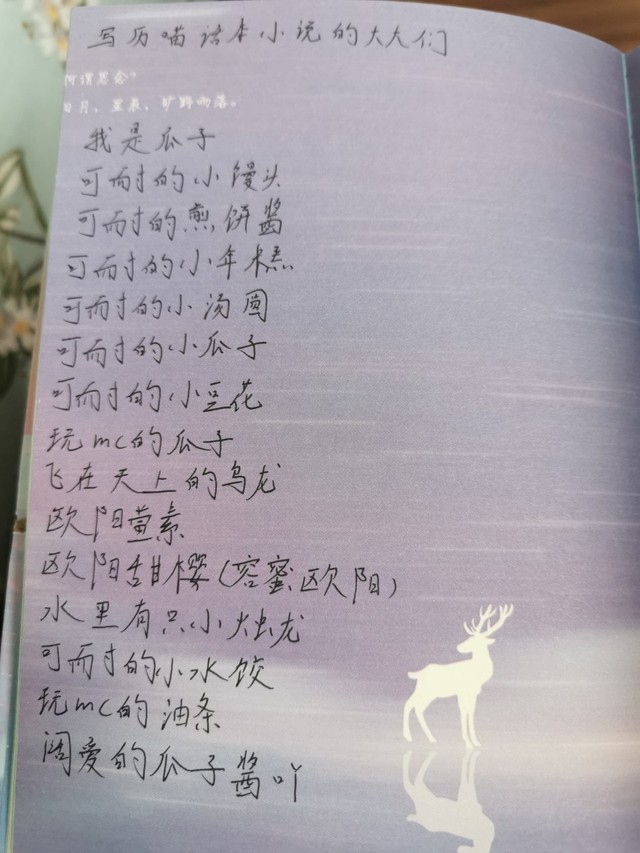 写历喵话本小说的大大们
何谓思念?
日月、星辰、旷野雨落。
我是瓜子
可耐的小馒头
可耐的煎饼酱
可耐的小年糕
可耐的小汤圆
可耐的小瓜子
可耐的小豆花
玩mc的瓜子
飞在天上的乌龙
欧阳萱素
欧阳甜樱(容蜜欧阳)
水里有只小烛龙
可耐的小水饺
玩mc的油条
阔爱的瓜子酱吖